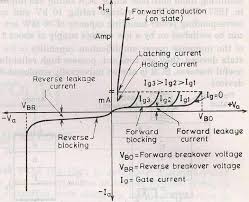 +Ia
Forward conduction
(on state)
Amp
Latching current
Holding current
Reverse leakage
current
Ig3>Ig2>Ig1
mA
Ig3
Ig2
Ig1
Ig=0
VBR
-Va
+Va
VBO
Reverse
blocking
Forward
blocking
Forward leakage
current
VBO=Forward breakover voltage
VBR=Reverse breakover voltage
Ig=Gate current
-Ia